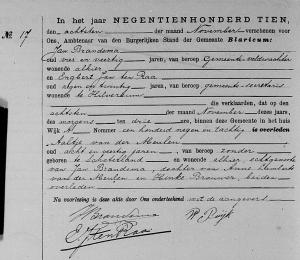 In het jaar NEGENTIENHONDERD TIEN,
No. 17 den achtsten der maand November verschenen voor
Ons, Ambtenaar van den Burgerlijken Stand der Gemeente Blaricum:
Jan Brandsma
oud vier en veertig jaren, van beroep Gemeente veldwachter
wonende alhier
en Engbert Jan ten Raa
oud negen en twintig jaren, van beroep gemeente secretaris
wonende te Hilversum
die verklaarden, dat op den
achtsten der maand November dezes jaars,
des morgens ten drie ure, binnen deze Gemeente in het huis
Wijk A Nommer een honderd negen en tachtig is overleden
Aaltje van der Meulen
oud acht en veertig jaren, van beroep zonder
geboren te en wonende alhier, echtgenoote
van Jan Brandsma, dochter van
van der Meulen en Hinke Brouwer, beiden
overleden
Na voorlezing is deze akte door Ons onderteekend met de aangevers
J Brandsma
E J ten Raa